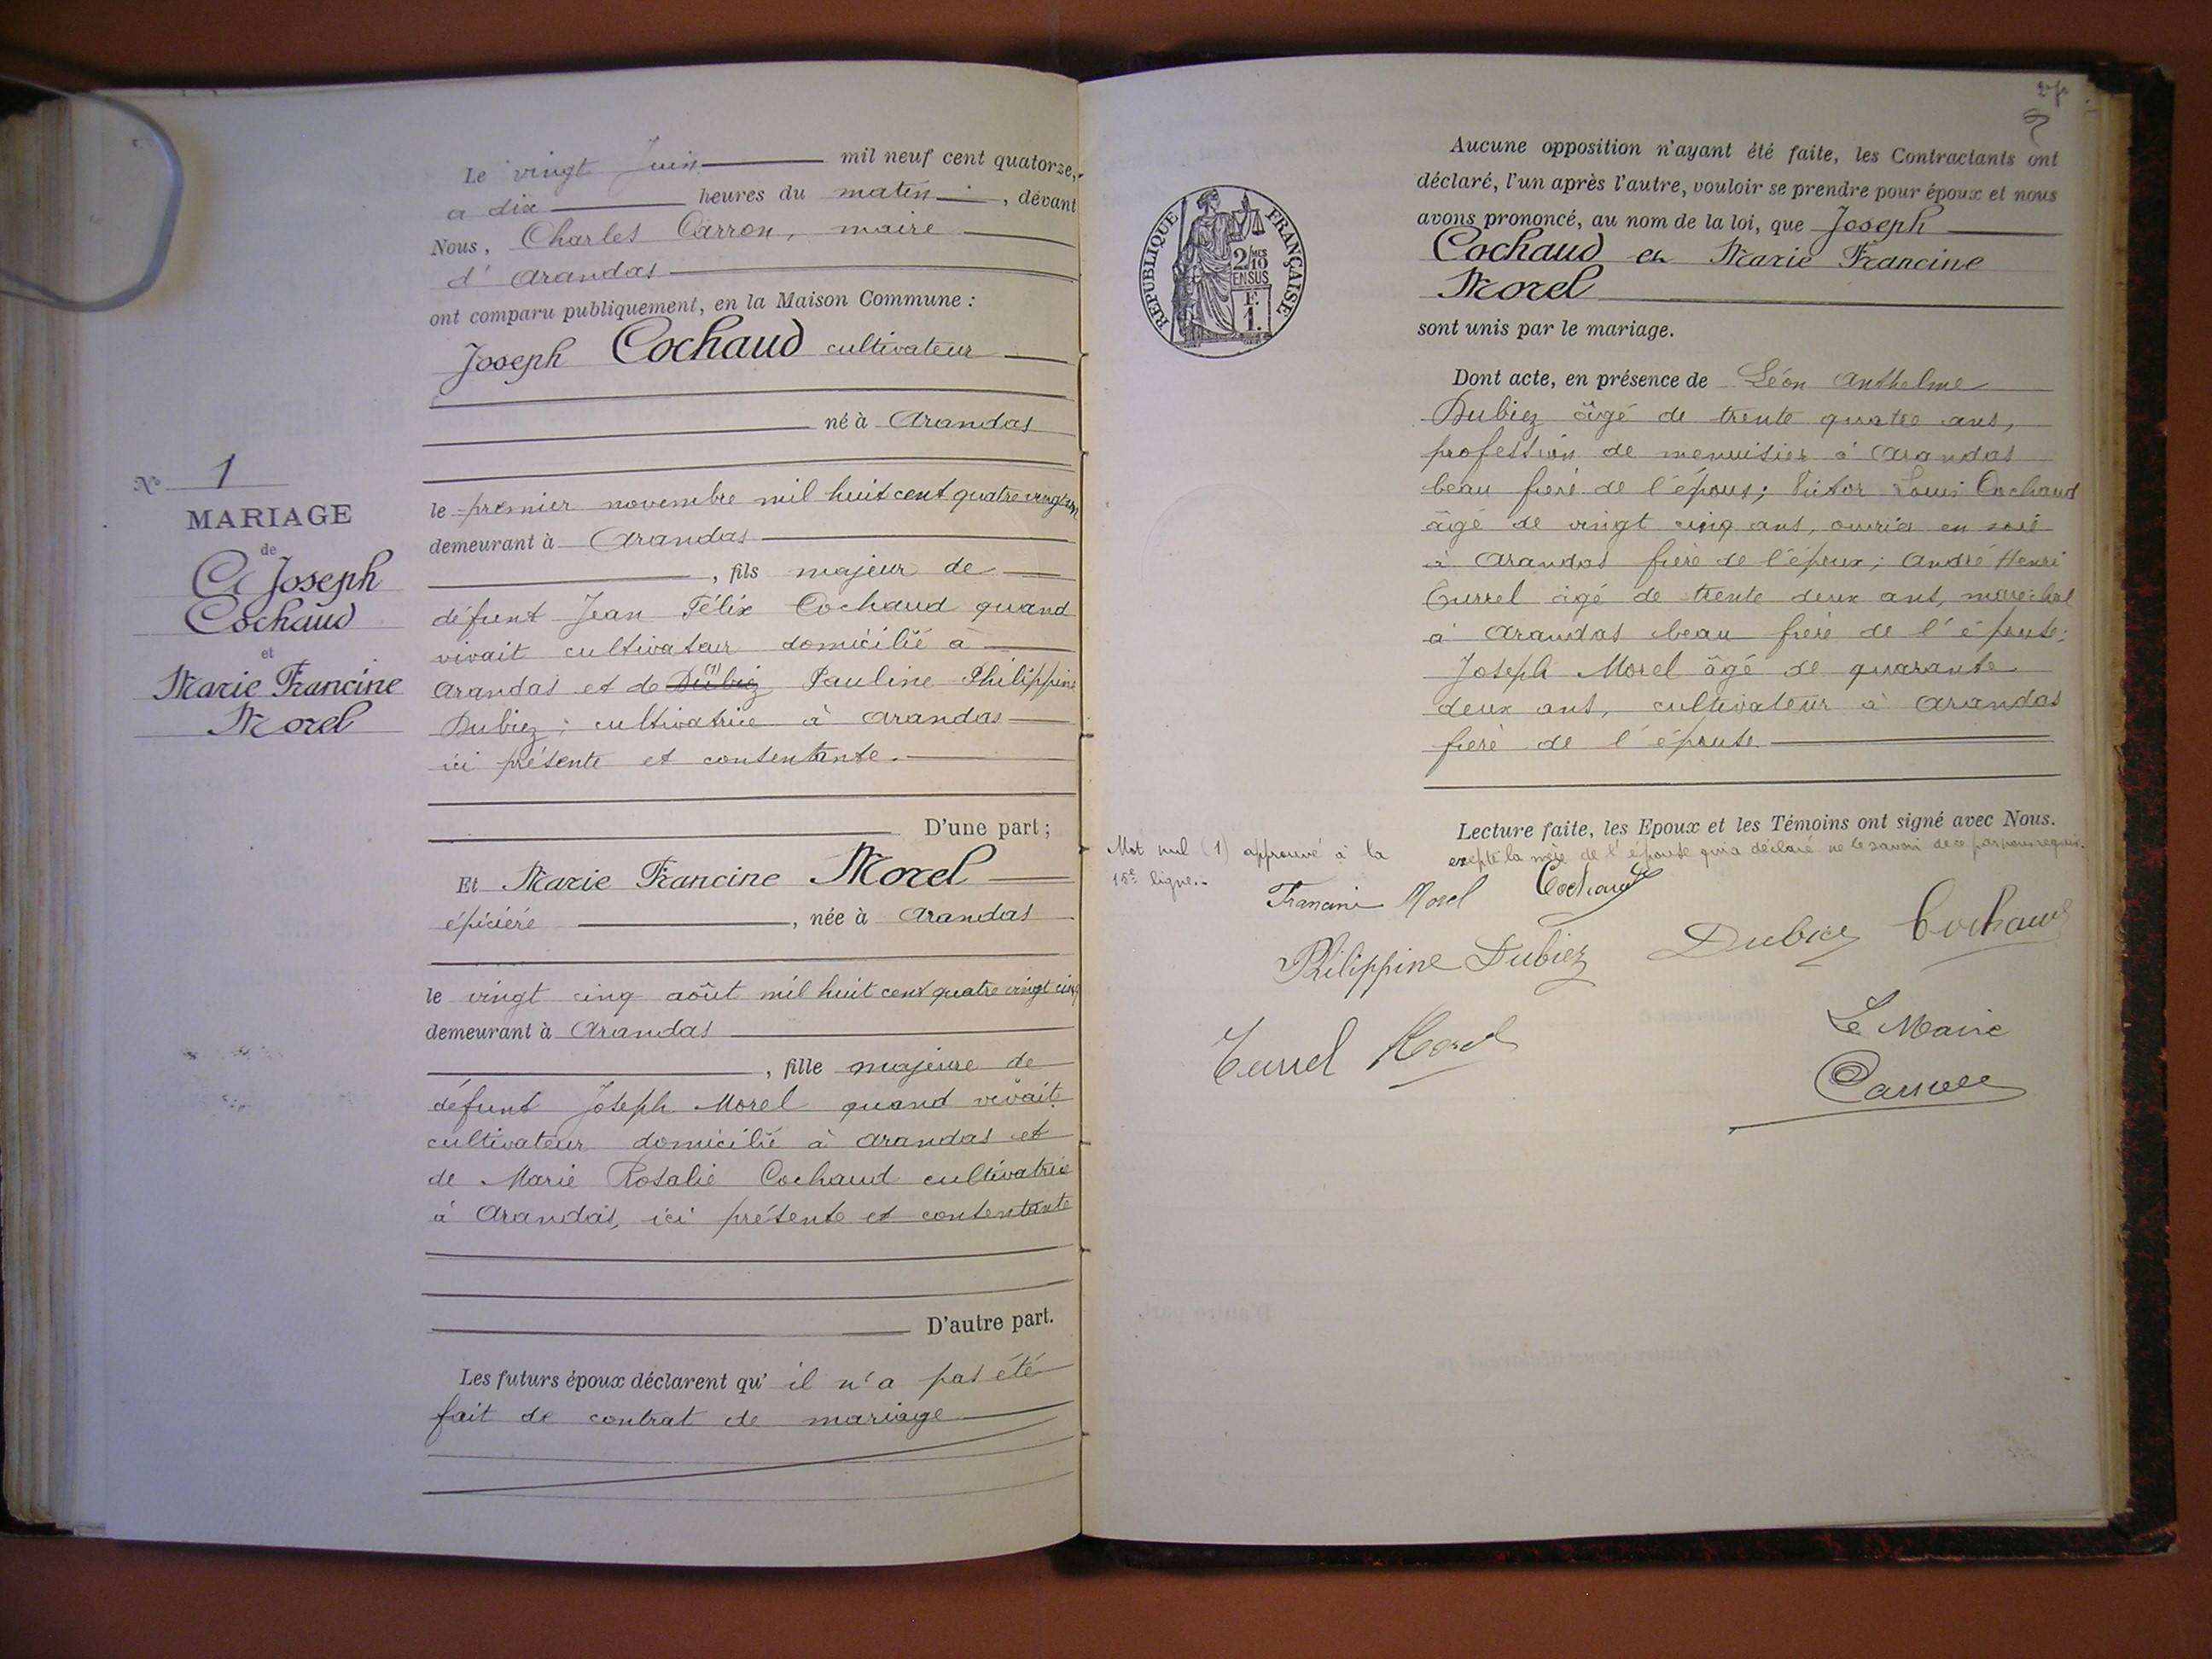 Le vingt Juin mil neuf cent quatorze,
a dix heures du matin, devant
Nous, Charles Carron, maire
d' Arandas
ont comparu publiquement, en la Maison Commune :
Joseph Cochaud cultivateur
né à Arandas
le premier novembre mil huit cent quatre vingt un
demeurant à Arandas
, fils majeur de
défunt Jean Félix Cochaud quand
vivait cultivateur domicilié à
Arandas et de (1) Dubiez Pauline Philippine
Dubiez ; cultivatrice à Arandas
ici présente et consentante.
D'une part ;
Et Marie Francine Morel
épicière, née à Arandas
le vingt cinq août mil huit cent quatre vingt cinq
demeurant à Arandas
, fille majeure de
défunt Joseph Morel quand vivait
cultivateur domicilié à Arandas et
de Marie Rosalie Cochaud cultivatrice
à Arandas, ici présente et consentante
D'autre part.
Les futurs époux déclarent qu' il n'a pas été
fait de contrat de mariage
No 1
MARIAGE
de
Joseph
Cochaud
et
Marie Francine
Morel
2
RÉPUBLIQUE FRANÇAISE
2/10 MES
EN SUS
F.
1.
Aucune opposition n'ayant été faite, les Contractants ont
déclaré, l'un après l'autre, vouloir se prendre pour époux et nous
avons prononcé, au nom de la loi, que Joseph
Cochaud et Marie Francine
Morel
sont unis par le mariage.
Dont acte, en présence de Léon Anthelme
Dubiez âgé de trente quatre ans,
profession de menuisier à Arandas
beau frère de l'époux ; Victor Louis Cochaud
âgé de vingt cinq ans, ouvrier en soie
à Arandas frère de l'époux ; André Henri
Currel âgé de trente deux ans, marechal
à Arandas beau frère de l'épouse ;
Joseph Morel âgé de quarante
deux ans, cultivateur à Arandas
frère de l'épouse.
Lecture faite, les Epoux et les Témoins ont signé avec Nous.
excepté la mère de l'épouse qui a déclaré ne le savoir de ce par nous requis.
Mot nul (1) approuvé à la
15e ligne.
Francine Morel Cochaud
Philippine Dubiez Dubiez Cochaud
Currel Morel
Le Maire
Carron